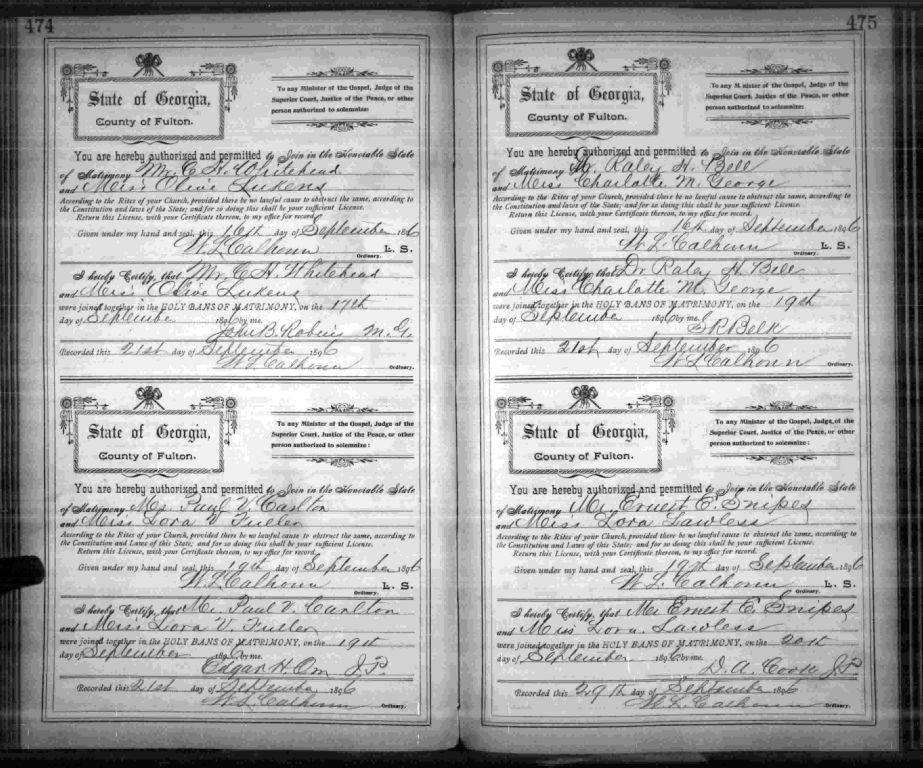 474
State of Georgia,
County of Fulton.
To any Minister of the Gospel, Judge of the
Superior Court, Justice of the Peace, or other
person authorized to solemnize:
You are hereby authorized and permitted to Join in the Honorable State
of Matrimony Mr. C. H. Whitehead
and Miss Olive Lukens
According to the Rites of your Church, provided there be no lawful cause to obstruct the same, according to
the Constitution and laws of the State; and for so doing this shall be your sufficient License.
Return this License, with your Certificate thereon, to my office for record.
Given under my hand and seal, this 16th day of September 1896
W. L. Calhoun L. S.
Ordinary.
I hereby Certify, that Mr. C. H. Whitehead
and Miss Olive Lukens
were joined together in the HOLY BANS OF MATRIMONY, on the 17th
day of September 1896 by me.
John B. Robins M. G.
Recorded this 21st day of September 1896
W. L. Calhoun Ordinary.
State of Georgia,
County of Fulton.
To any Minister of the Gospel, Judge of the
Superior Court, Justice of the Peace, or other
person authorized to solemnize:
You are hereby authorized and permitted to Join in the Honorable State
of Matrimony Mr. Paul V. Carlton
and Miss Lora V. Fuller
According to the Rites of your Church, provided there be no lawful cause to obstruct the same, according to
the Constitution and Laws of this State; and for so doing this shall be your sufficient License.
Return this License, with your Certificate thereon, to my office for record.
Given under my hand and seal, this 19th day of September 1896
W. L. Calhoun L. S.
Ordinary.
I hereby Certify, that Mr. Paul V. Carlton
and Miss Lora V. Fuller
were joined together in the HOLY BANS OF MATRIMONY, on the 19th
day of September 1896 by me.
Edgar H. Orr J. P.
Recorded this 21st day of September 1896
W. L. Calhoun Ordinary.
475
State of Georgia,
County of Fulton.
To any Minister of the Gospel, Judge of the
Superior Court, Justice of the Peace, or other
person authorized to solemnize:
You are hereby authorized and permitted to Join in the Honorable State
of Matrimony Dr. Raley H. Bell
and Miss Charlotte M. George
According to the Rites of your Church, provided there be no lawful cause to obstruct the same, according to
the Constitution and laws of the State; and for so doing this shall be your sufficient License.
Return this License, with your Certificate thereon, to my office for record.
Given under my hand and seal, this 16th day of September 1896
W. L. Calhoun L. S.
Ordinary.
I hereby Certify, that Dr. Raley H. Bell
and Miss Charlotte M. George
were joined together in the HOLY BANS OF MATRIMONY, on the 19th
day of September 1896 by me.
S. R. Belk
Recorded this 21st day of September 1896
W. L. Calhoun Ordinary.
State of Georgia,
County of Fulton.
To any Minister of the Gospel, Judge, of the
Superior Court, Justice of the Peace, or other
person authorized to solemnize:
You are hereby authorized and permitted to Join in the Honorable State
of Matrimony Mr. Ernest E. Snipes
and Miss Lora Lawless
According to the Rites of your Church, provided there be no lawful cause to obstruct the same, according to
the Constitution and Laws of this State; and for so doing this shall be your sufficient License.
Return this License, with your Certificate thereon, to my office for record.
Given under my hand and seal, this 19th day of September 1896
W. L. Calhoun L. S.
Ordinary.
I hereby Certify, that Mr. Ernest E. Snipes
and Miss Lora Lawless
were joined together in the HOLY BANS OF MATRIMONY, on the 20th
day of September 1896 by me.
D. A. Cook J. P.
Recorded this 29th day of September 1896
W. L. Calhoun Ordinary.